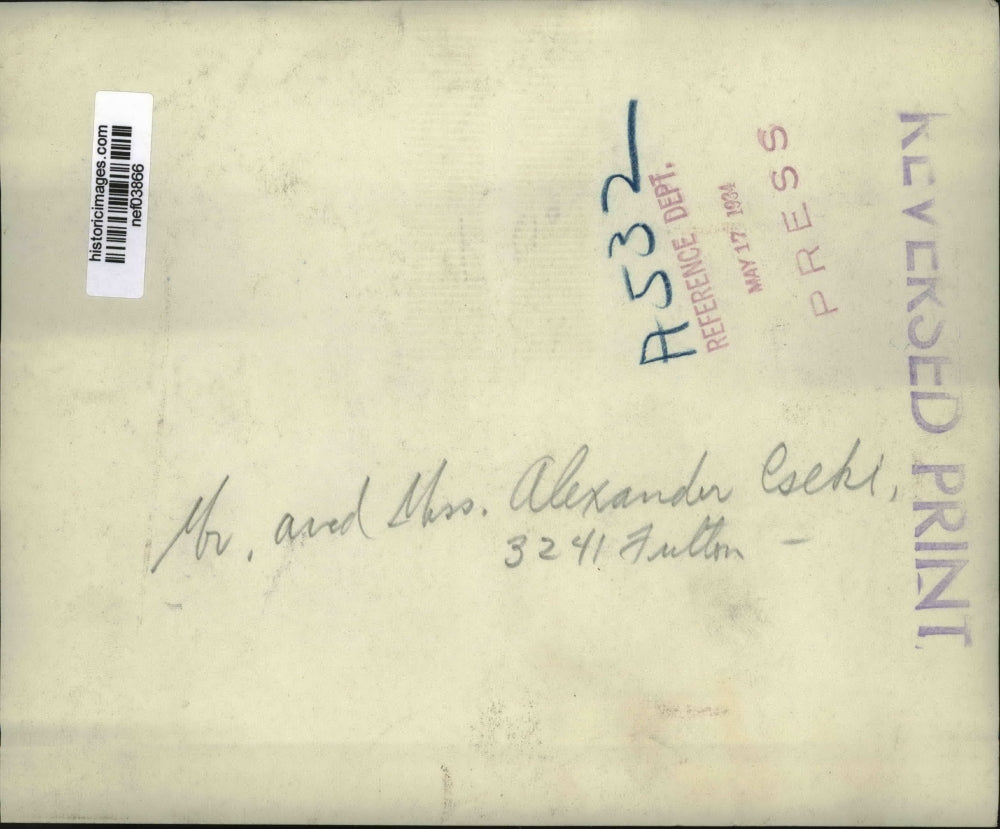 historicimages.com
nef03866
A532
REFERENCE DEPT.
MAY 17 1934
PRESS
REVERSED PRINT
Mr. and Mrs. Alexander Cseki,
3241 Fulton –